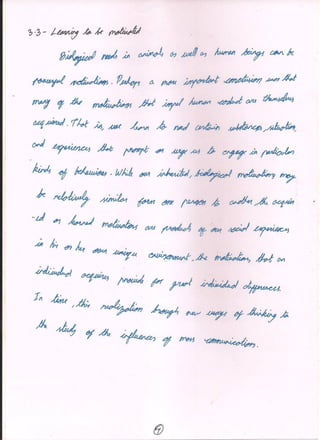 3.3 - Learning to be motivated
Biological needs in animals as well as human beings can be
powerful motivations. Perhaps a more important conclusion was that
many of the motivations that impel human conduct are themselves
acquired. That is, we learn to need certain substances, situations,
and experiences that prompt or urge us to engage in particular
kinds of behaviours. While our inherited, biological motivations may
be relatively similar from one person to another, the acquir
-ed or learned motivations are products of our social experiences
in his or her own unique environment, the motivations that an
individual acquires provide for great individual differences.
In time, this realization brought new ways of thinking to
the study of the influences of mass communication.
9